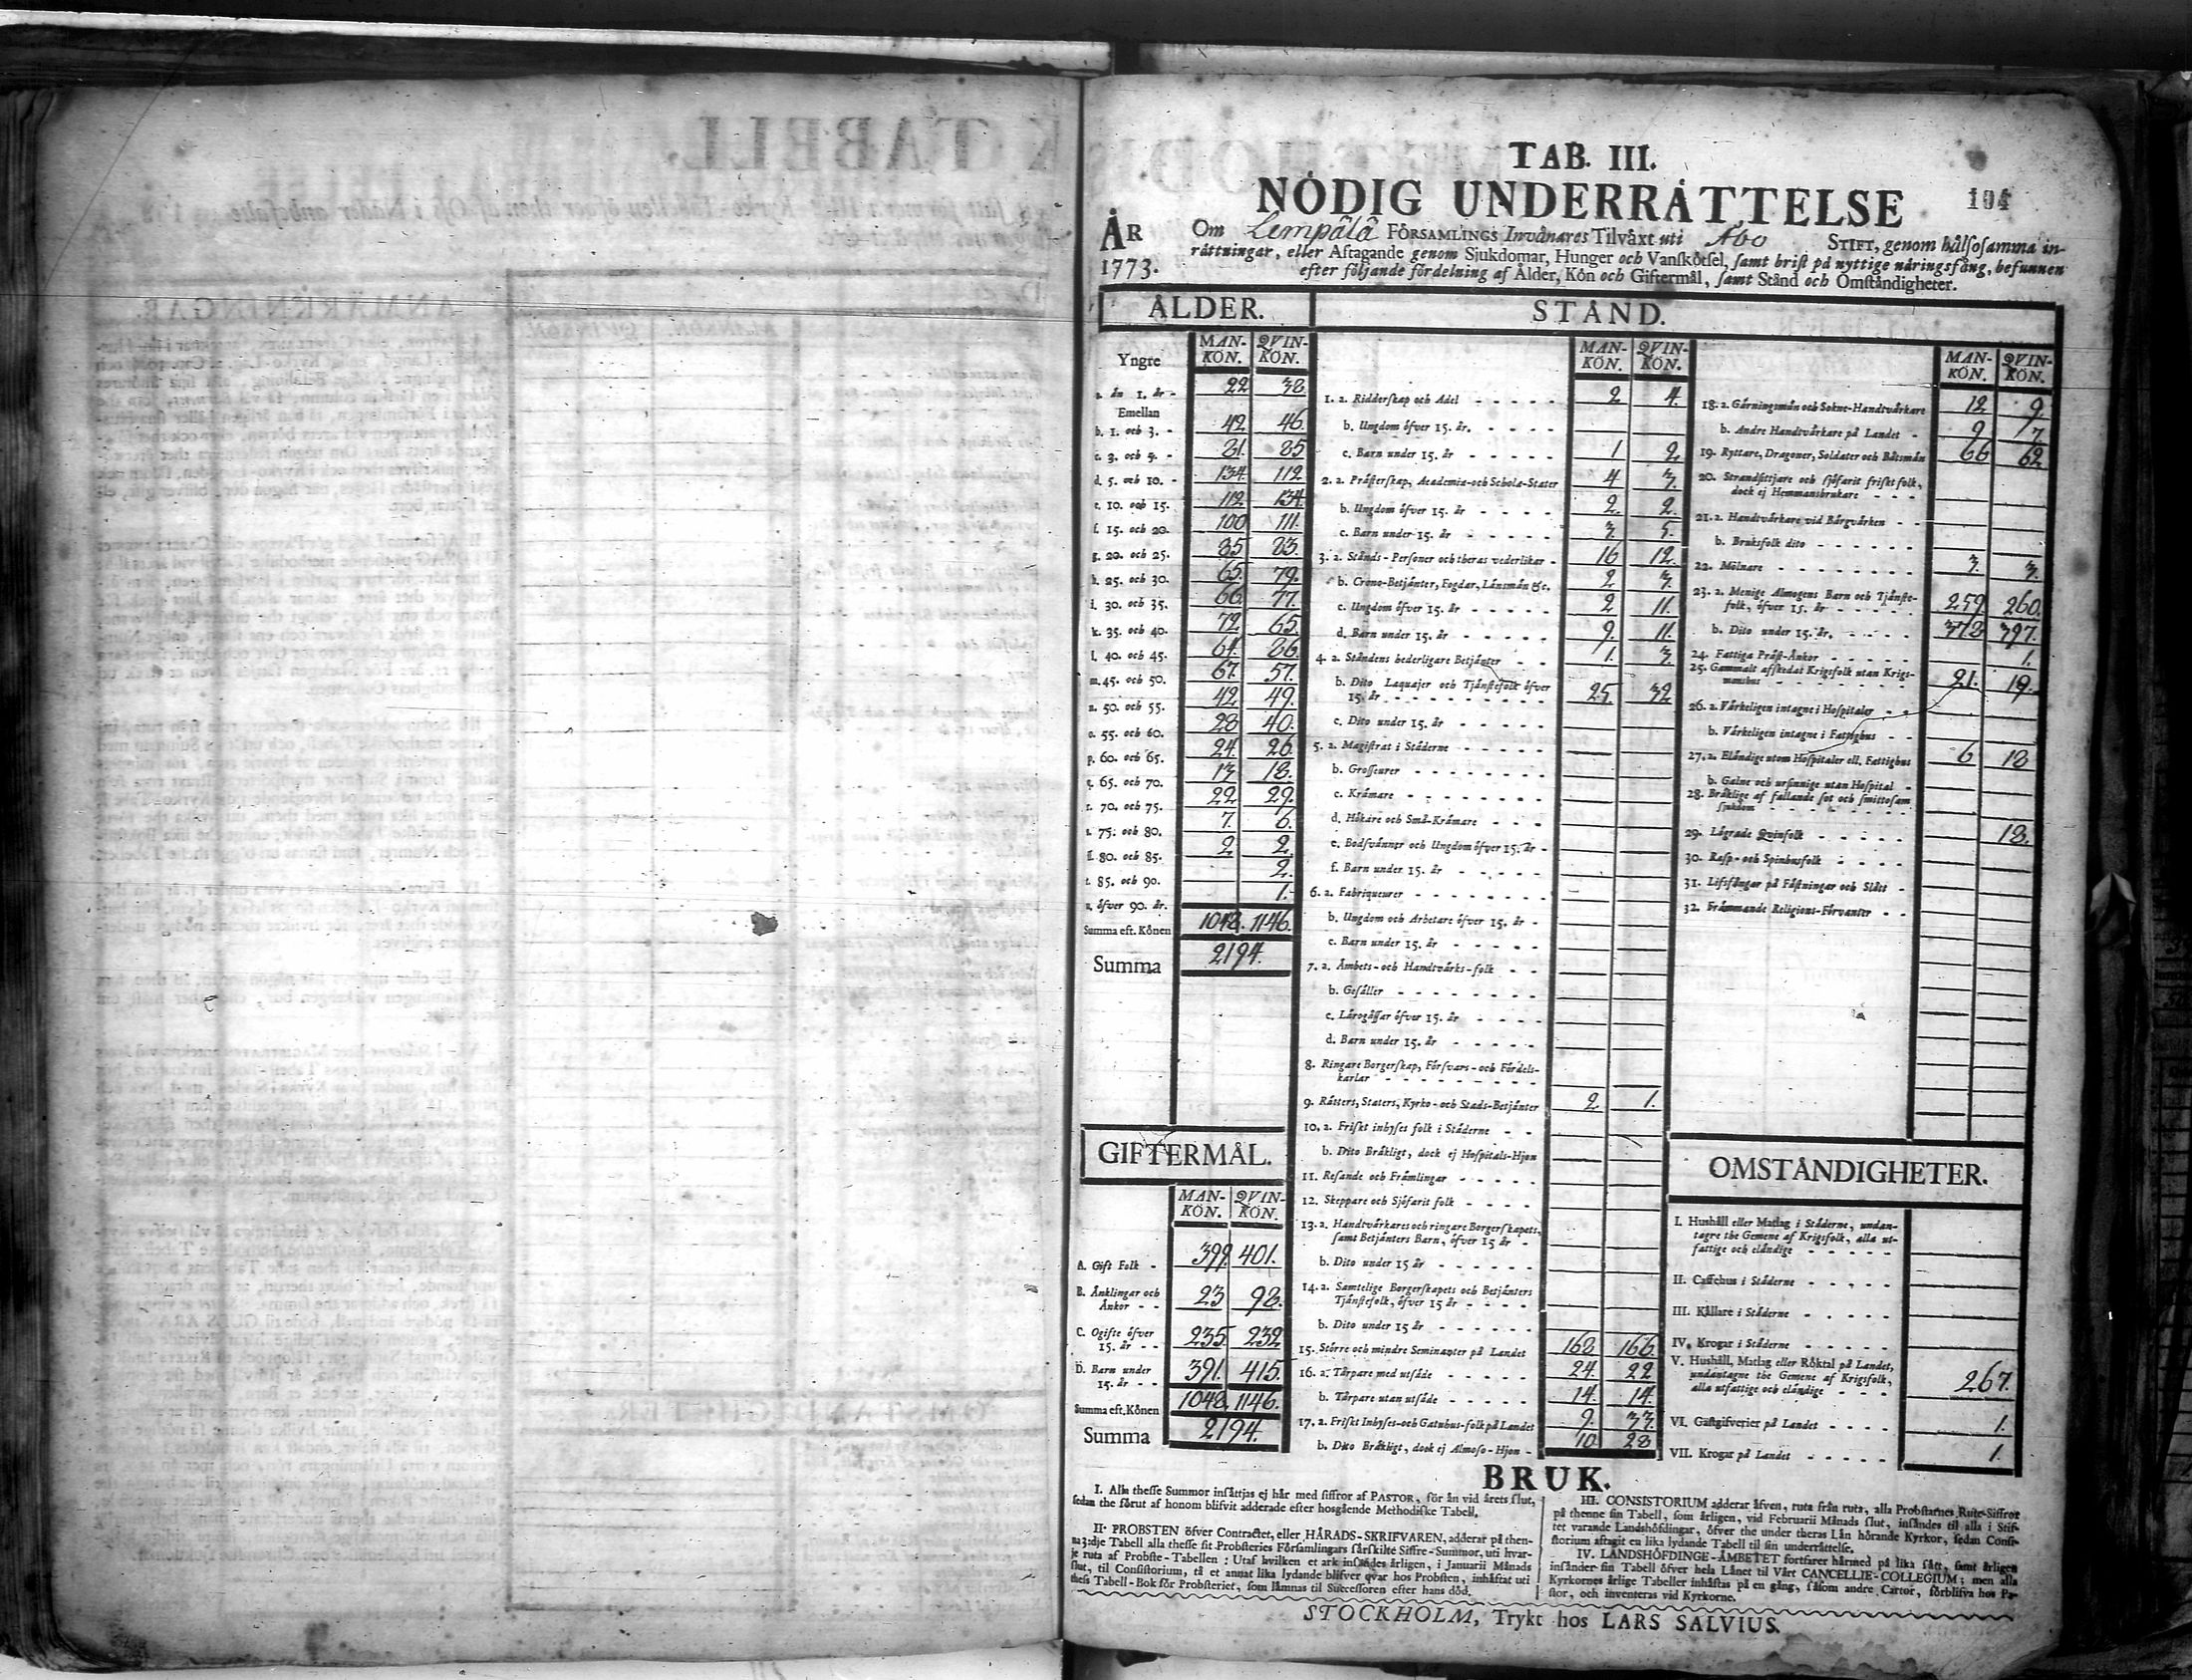 TAB. III.
NÖDIG UNDERRÄTTELSE
104
ÅR 1773.
Om Lempälä FÖRSAMLINGS Invånares Tilväxt uti Åbo STIFT, genom hälsosamma in-
rättningar, eller Aftagande genom Sjukdomar, Hunger och Vanskötsel, samt brist på nyttige näringsfång, befunnen
efter följande fördelning af Ålder, Kön och Giftermål, samt Stånd och Omständigheter.
ÅLDER.
Yngre MAN-KÖN. QVIN-KÖN.
a. än 1. år - 22 38
Emellan
b. 1. och 3. - 42 46
c. 3. och 5. - 81. 85
d. 5. och 10. - 134. 112
e. 10. och 15. 112 134.
f. 15. och 20. 100 111.
g. 20. och 25. 85 83.
h. 25. och 30. 65. 79.
i. 30. och 35. 66. 77.
k. 35. och 40. 72 65.
l. 40. och 45. 64. 86.
m. 45. och 50. 67. 57.
n. 50. och 55. 42 49.
o. 55. och 60. 28 40.
p. 60. och 65. 24. 26.
q. 65. och 70. 13 18.
r. 70. och 75. 22 29.
s. 75. och 80. 7. 6.
ſ. 80. och 85. 2 2.
t. 85. och 90. 2.
u. öfver 90. år. 1.
Summa eft. Könen 1048. 1146.
Summa 2194.
GIFTERMÅL.
MAN-KÖN. QVIN-KÖN.
A. Gift Folk - 399. 401.
B. Änklingar och
Änkor - - 23 98.
C. Ogifte öfver
15. år - - 235. 232
D. Barn under
15. år - - 391. 415.
Summa eft. Könen 1048. 1146.
Summa 2194.
STÅND.
MAN-KÖN. QVIN-KÖN.
1. a. Ridderskap och Adel 2 4.
b. Ungdom öfver 15. år.
c. Barn under 15. år 1 2.
2. a. Prästerskap, Academiæ-och Scholæ-Stater 4 3.
b. Ungdom öfver 15. år 2. 2.
c. Barn under 15. år 3. 5.
3. a. Stånds-Personer och theras vederlikar 16 12.
b. Crono-Betjänter, Fogdar, Länsmän &c. 2 3.
c. Ungdom öfver 15. år 2 11.
d. Barn under 15. år 9. 11.
4. a. Ståndens hederligare Betjänter 1. 3.
b. Dito Laquajer och Tjänstefolk öfver
15. år 25. 32
c. Dito under 15. år
5. a. Magistrat i Städerne
b. Grosseurer
c. Krämare
d. Hökare och Små-Krämare
e. Bodsvänner och Ungdom öfver 15. år
f. Barn under 15. år
6. a. Fabriqueurer
b. Ungdom och Arbetare öfver 15. år
c. Barn under 15. år
7. a. Ämbets-och Handtvärks-folk
b. Gesäller
c. Lärogåssar öfver 15. år
d. Barn under 15. år
8. Ringare Borgerskap, Försvars-och Fördels-
karlar
9. Rätters, Staters, Kyrko-och Stads-Betjänter 2 1.
10. a. Friskt inhyses folk i Städerne
b. Dito Bräkligt, dock ej Hospitals-Hjon
11. Resande och Främlingar
12. Skeppare och Sjöfarit folk
13. a. Handtvärkares och ringare Borgerskapets,
samt Betjänters Barn, öfver 15 år
b. Dito under 15 år
14. a. Samtelige Borgerskapets och Betjänters
Tjänstefolk, öfver 15 år
b. Dito under 15 år
15. Större och mindre Seminanter på Landet 168 166.
16. a. Tårpare med utsäde 24. 22
b. Tårpare utan utsäde 14. 14.
17. a. Friskt Inhyses-och Gatuhus-folk på Landet 9. 33.
b. Dito Bräkligt, dock ej Almoso-Hjon 10 28
MAN-KÖN. QVIN-KÖN.
18. a. Gärningsmän och Sokne-Handtvärkare 12 9.
b. Andre Handtvärkare på Landet 9 7
19. Ryttare, Dragoner, Soldater och Båtsmän 66 62
20. Strandsittjare och sjöfarit friskt folk,
dock ej Hemmansbrukare
21. a. Handtvärkare vid Bärgvärken
b. Bruksfolk dito
22. Mölnare 3. 3.
23. a. Menige Almogens Barn och Tjänste-
folk, öfver 15. år 259. 260.
b. Dito under 15. år. 378 397.
24. Fattiga Präst-Änkor 1.
25. Gammalt afskedat Krigsfolk utan Krigs-
manshus 21. 19.
26. a. Värkeligen intagne i Hospitaler
b. Värkeligen intagne i Fattighus
27. a. Eländige utom Hospitaler ell. Fattighus 6 18
b. Galne och ursinnige utan Hospital
28. Bräklige af fallande sot och smittosam
sjukdom
29. Lägrade Qvinfolk 18.
30. Rasp-och Spinhusfolk
31. Lifsfångar på Fästningar och Slått
32. Främmande Religions-Förvanter
OMSTÄNDIGHETER.
I. Hushåll eller Matlag i Städerne, undan-
tagne the Gemene af Krigsfolk, alla ut-
fattige och eländige
II. Caffehus i Städerne
III. Källare i Städerne
IV. Krogar i Städerne
V. Hushåll, Matlag eller Röktal på Landet,
undantagne the Gemene af Krigsfolk,
alla utfattige och eländige 267.
VI. Gästgifverier på Landet 1.
VII. Krogar på Landet 1.
BRUK.
I. Alla thesse Summor insättjas ej här med siffror af PASTOR, för än vid årets slut,
sedan the förut af honom blifvit adderade efter hosgående Methodiske Tabell.
II. PROBSTEN öfver Contractet, eller HÄRADS-SKRIFVAREN, adderar på then-
na 3:dje Tabell alla thesse sit Probsteries Församlingars särskilte Siffre-Summor, uti hvar-
je ruta af Probste-Tabellen: Utaf hvilken et ark insändes årligen, i Januarii Månads
slut, til Consistorium, tå et annat lika lydande blifver qvar hos Probsten, inhäftat uti
thess Tabell-Bok för Probsteriet, som lämnas til Successoren efter hans död.
III. CONSISTORIUM adderar äfven, ruta från ruta, alla Probstarnes Rute-Siffror
på thenne sin Tabell, som årligen, vid Februarii Månads slut, insändes til alla i Stif-
tet varande Landshöfdingar, öfver the under theras Län hörande Kyrkor, sedan Consi-
storium aftagit en lika lydande Tabell til sin underrättelse.
IV. LANDSHÖFDINGE-ÄMBETET fortfarer härmed på lika sätt, samt årligen
insänder sin Tabell öfver hela Länet til Vårt CANCELLIE-COLLEGIUM; men alla
Kyrkornes årlige Tabeller inhäftas på en gång, såsom andre Cartor, förblifva hos Pa-
stor, och inventeras vid Kyrkorne.
STOCKHOLM, Trykt hos LARS SALVIUS.